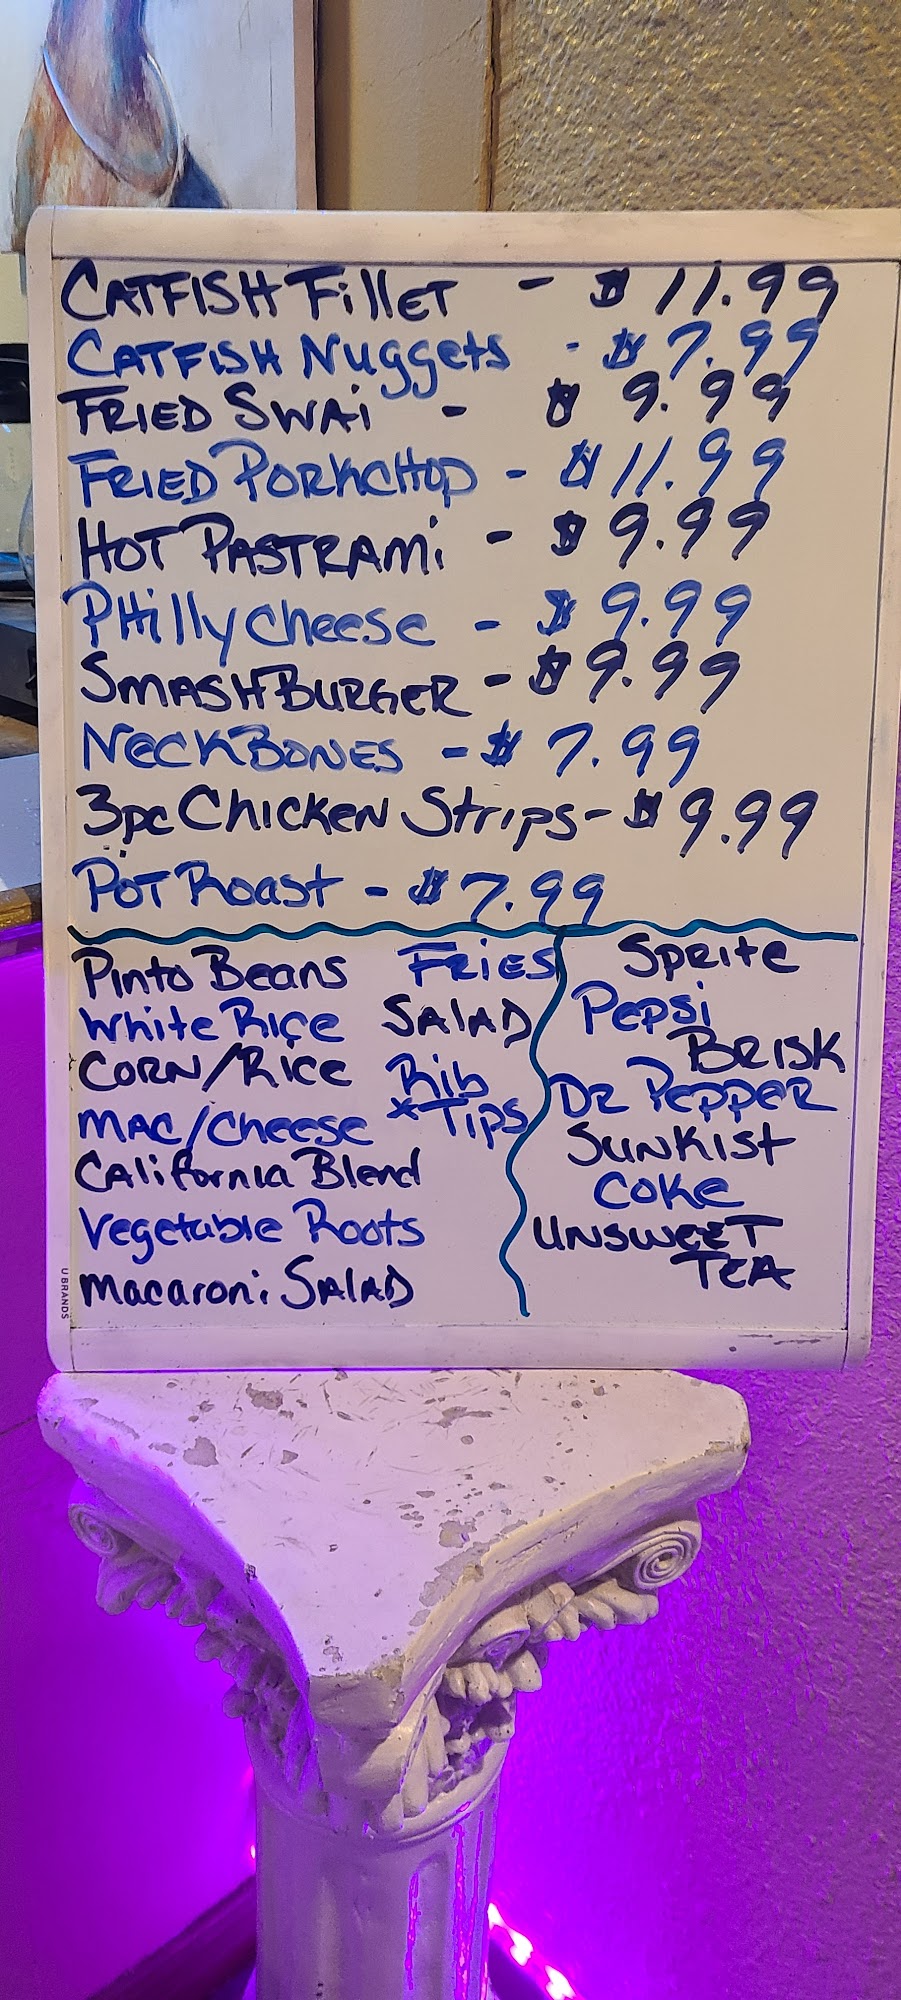 CATFISH Fillet - $ 11.99
CATFISH Nuggets - $ 7.99
FRIED SWAi - $ 9.99
FRIED PORKCHOP - $ 11.99
HOT PASTRAMi - $ 9.99
PHilly cheese - $ 9.99
SMASHBURGER - $ 9.99
NeckBONES - $ 7.99
3pc Chicken Strips - $ 9.99
POT Roast - $ 7.99
Pinto Beans
White Rice
CORN/Rice
MAC/Cheese
California Blend
Vegetable Roots
Macaroni SALAD
FRiES
SALAD
Rib
*Tips
Sprite
Pepsi
BRISK
DR PEPPER
SUNKist
COKe
UNSWEET
TEA
U BRANDS